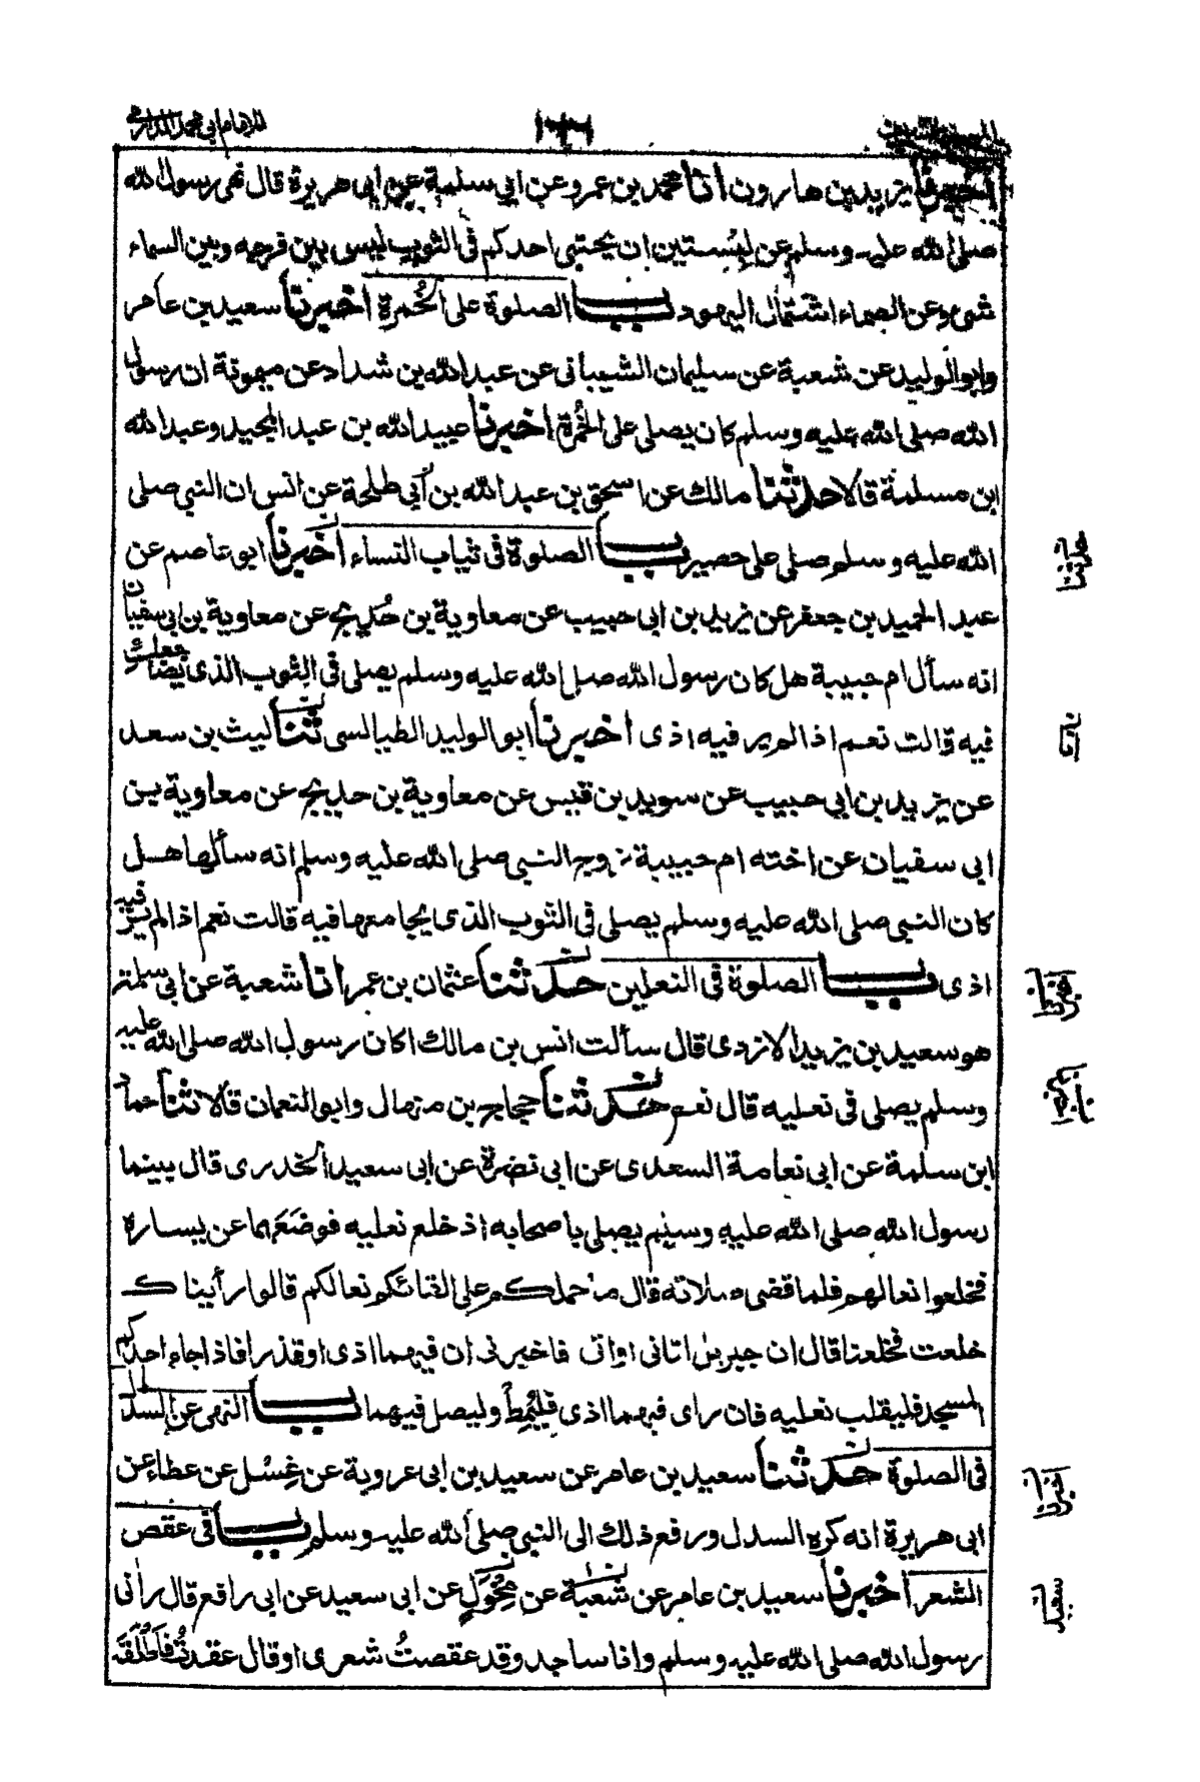 للامام ابي محمد الدارمي
يزيد بن هارون انا محمد بن عمرو عن ابي سلمة عن ابى هريرة قال نهى رسول الله
صلى الله عليه وسلم عن لبستين ان يحتبى احدكم فى الثوب ليس بين فرجه وبين السماء
شىء وعن الصماء اشتمال اليهود باب الصلوة على الخُمرة اخبرنا سعيد بن عامر
وابو الوليد عن شعبة عن سليمان الشيبانى عن عبد الله بن شداد عن ميمونة ان رسول
الله صلى الله عليه وسلم كان يصلى على الخُمرة اخبرنا عبيد الله بن عبد المجيد وعبد الله
ابن مسلمة قالا حدثنا مالك عن اسحق بن عبد الله بن أبي طلحة عن انس ان النبي صلى
الله عليه وسلم صلى على حصير باب الصلوة فى ثياب النساء اخبرنا ابو عاصم عن
عبد الحميد بن جعفر عن يزيد بن ابى حبيب عن معاوية بن حُديج عن معاوية بن ابي سفيان
انه سأل ام حبيبة هل كان رسول الله صلى الله عليه وسلم يصلى فى الثوب الذى يضاجعك
فيه قالت نعم اذا لم ير فيه اذى اخبرنا ابو الوليد الطيالسى ثنا ليث بن سعد
عن يزيد بن ابي حبيب عن سويد بن قيس عن معاوية بن حديج عن معاوية بن
ابى سفيان عن اخته ام حبيبة زوج النبي صلى الله عليه وسلم انه سألها هل
كان النبي صلى الله عليه وسلم يصلى فى الثوب الذى يجامعها فيه قالت نعم اذا لم ير فيه
اذى باب الصلوة فى النعلين حدثنا عثمان بن عمر انا شعبة عن ابي سلمة
هو سعيد بن يزيد الازدى قال سألت انس بن مالك اكان رسول الله صلى الله عليه
وسلم يصلى فى نعليه قال نعم حدثنا حجاج بن منهال وابو النعمان قالا ثنا حماد
ابن سلمة عن ابى نعامة السعدى عن ابى نضرة عن ابى سعيد الخدرى قال بينما
رسول الله صلى الله عليه وسلم يصلى باصحابه اذ خلع نعليه فوضَعَهما عن يساره
فخلعوا نعالهم فلما قضى صلاته قال ما حملكم على القائكم نعالكم قالوا رأيناك
خلعت فخلعنا قال ان جبريل اتانى او اتى فاخبرنى ان فيهما اذى او قذرا فاذا جاء احدكم
المسجد فليقلب نعليه فان راى فيهما اذى فليُمِطْ وليصل فيهما باب النهى عن السدل
فى الصلوة حدثنا سعيد بن عامر عن سعيد بن ابى عروبة عن عِسْل عن عطاء عن
ابى هريرة انه كره السدل ورفع ذلك الى النبي صلى الله عليه وسلم باب فى عقص
الشعر اخبرنا سعيد بن عامر عن شعبة عن مُخَوَّلٍ عن ابى سعيد عن ابى رافع قال رأنى
رسول الله صلى الله عليه وسلم وانا ساجد وقد عقصتُ شعرى او قال عقدتُ فاَطْلَقَه
حدثنا
اخبرنا
اخبرنا
اخبرنا
سعيد